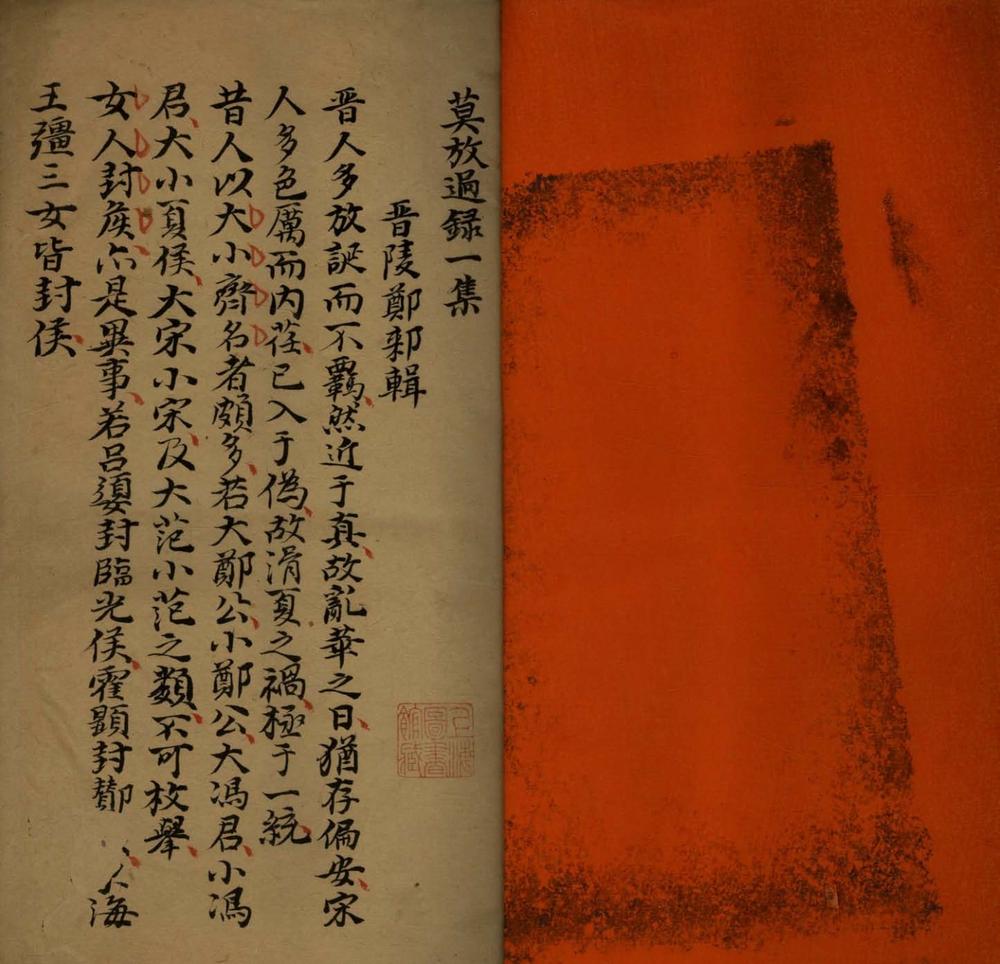 莫放過録一集
晋陵鄭䣊輯
晋人多放誕而不覊然近于真故亂華之日猶存偏安宋
人多色厲而内荏已入于偽故滑夏之禍極于一統
昔人以大小齊名者頗多若大鄭公小鄭公大馮君小馮
君大小夏侯大宋小宋及大范小范之類不可枚舉
女人封侯亦是異事若吕媭封臨光侯霍顯封酇 海
王彊三女皆封侯
上海圖書館藏